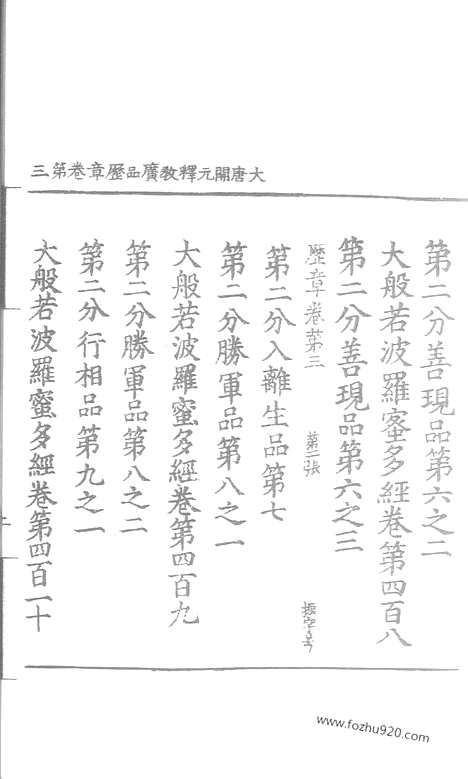 大唐開元釋教廣品歷章卷第三
第二分善現品第六之二
大般若波羅蜜多經卷第四百八
第二分善現品第六之三
歷章卷第三 第二張
第二分入離生品第七
第二分勝軍品第八之一
大般若波羅蜜多經卷第四百九
第二分勝軍品第八之二
第二分行相品第九之一
大般若波羅蜜多經卷第四百一十
www.fozhu920.com